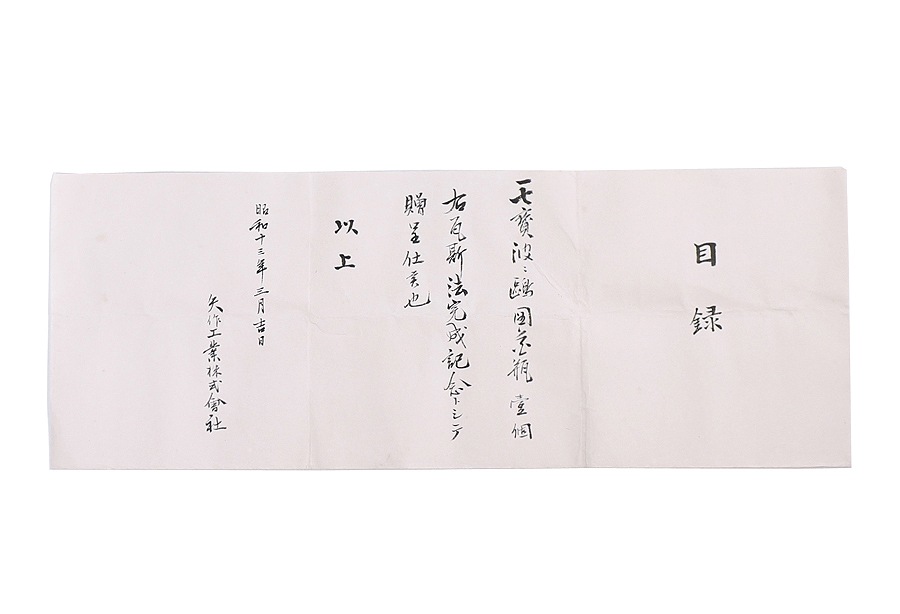 目録
一七寳波ニ鷗図花瓶 壹個
右瓦斯法完成記念トシテ
贈呈仕候也
以上
昭和十三年三月吉日
矢作工業株式會社